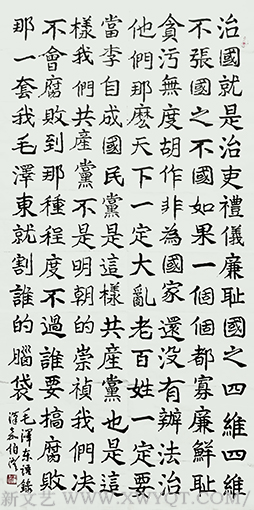 治國就是治吏禮儀廉恥國之四維四維
不張國之不國如果一個個都寡廉鮮恥
貪污無度胡作非為國家還沒有辦法治
他們那麼天下一定大亂老百姓一定要
當李自成國民黨是這樣共產黨也是這
樣我們共產黨不是明朝的崇禎我們決
不會腐敗到那種程度不過誰要搞腐敗
那一套我毛澤東就割誰的腦袋 毛澤东語錄
新文艺 - WWW.XWYQT.COM